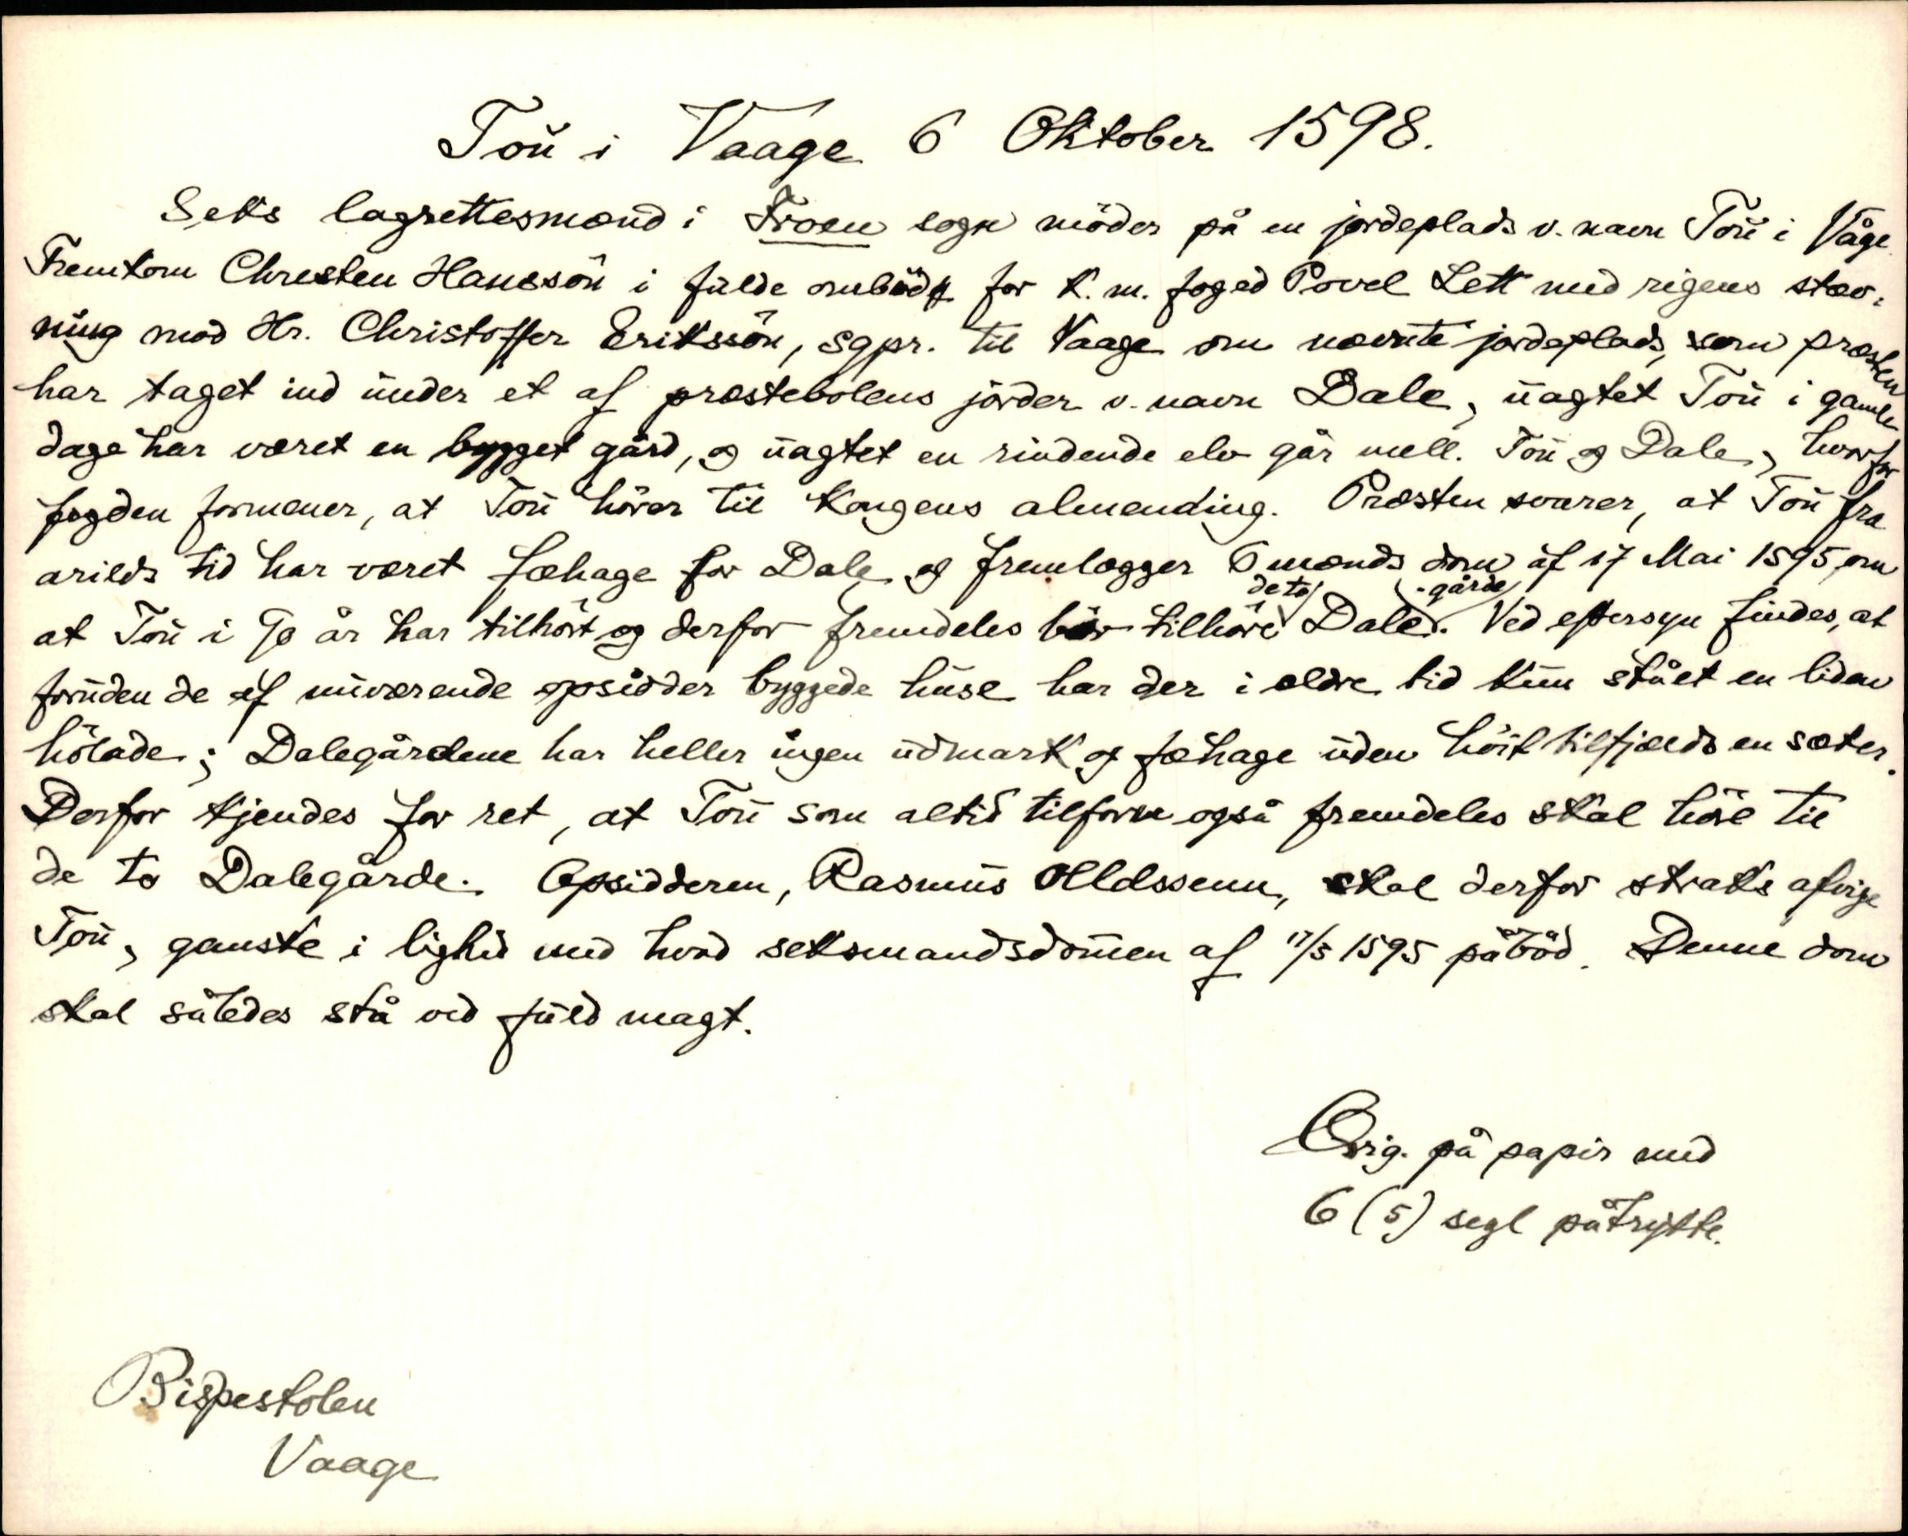 Toŭ i Vaage 6 Oktober 1598.
Seks lagrettesmænd i Froen sogn möder på en jordeplads v. navn Toŭ i Våge.
Fremkom Christen Hanssön i fŭlde ombŭd for K. m. foged Povel Lett med rigens stæv-
ning mod Hr. Christoffer Erikssön, sgpr. til Vaage om nævnte jordeplads, som præsten
har taget ind ŭnder et af præstebolens jorder v. navn Dale, ŭagtet Toŭ i gamle
dage har været en bygget gård, og ŭagtet en rindende elv går mell. Toŭ og Dale, hvorfor
fogden formener, at Toŭ hörer til Kongens almending. Præsten svarer, at Toŭ fra
arilds tid har været fæhage for Dale og fremlægger 6 mænds dom af 17 Mai 1595 om
at Toŭ i 90 år har tilhört og derfor fremdeles bör tilhöre de to Dale-gårde. Ved eftersyn findes, at
forŭden de af nŭværende opsidder byggede hŭse har der i ældre tid kŭn stået en liden
hölade; Dalegårdene har heller ingen ŭdmark og fæhage ŭden höit tilfjelds en sæter.
Derfor kjendes for ret, at Toŭ som altid tilforn også fremdeles skal höre til
de to Dalegårde. Opsidderen, Rasmŭs Olldssenn, skal derfor straks afvige
Toŭ, ganske i lighed med hvad seksmandsdommen af 17/5 1595 påbød. Denne dom
skal således stå ved fŭld magt.
Orig. på papir med
6 (5) segl påtrykte.
Bispestolen
Vaage